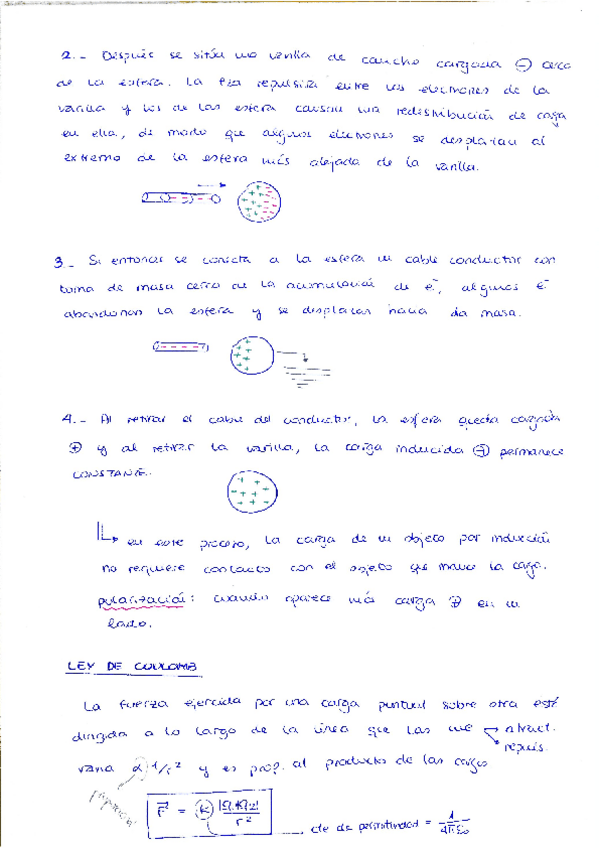 2.- Después se sitúa una varilla de caucho cargada ⊖ cerca
de la esfera. La fza repulsiva entre los electrones de la
varilla y los de las esfera causan una redistribución de carga
en ella, de modo que algunos electrones se desplazan al
extremo de la esfera más alejada de la varilla.
3.- Si entonces se conecta a la esfera un cable conductor con
toma de masa cerca de la acumulación de e⁻, algunos e⁻
abandonan la esfera y se desplazan hacia da masa.
4.- Al retirar el cable del conductor, la esfera queda cargada
⊕ y al retirar la varilla, la carga inducida ⊕ permanece
CONSTANTE.
↳ en este proceso, la carga de un objeto por inducción
no requiere contacto con el objeto que mueve la carga.
polarización: cuando aparece más carga ⊕ en un
lado.
LEY DE COULOMB
La fuerza ejercida por una carga puntual sobre otra esté
dirigida a lo largo de la línea que las une → atract.
repuls.
varia α 1/r² y es prop. al producto de las cargas
F = K |q1||q2| / r²
cte de permitividad = 1 / 4πε₀